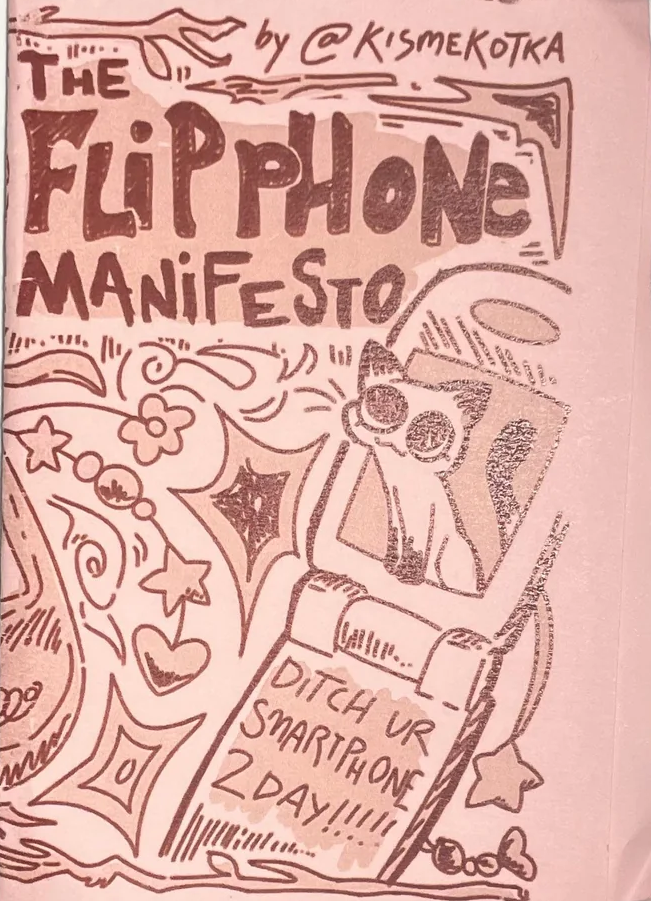 by @KISMEKOTKA
THE
FLiP PHONe
MANiFESTO
DITCH UR
SMARTPHONE
2DAY!!!!!